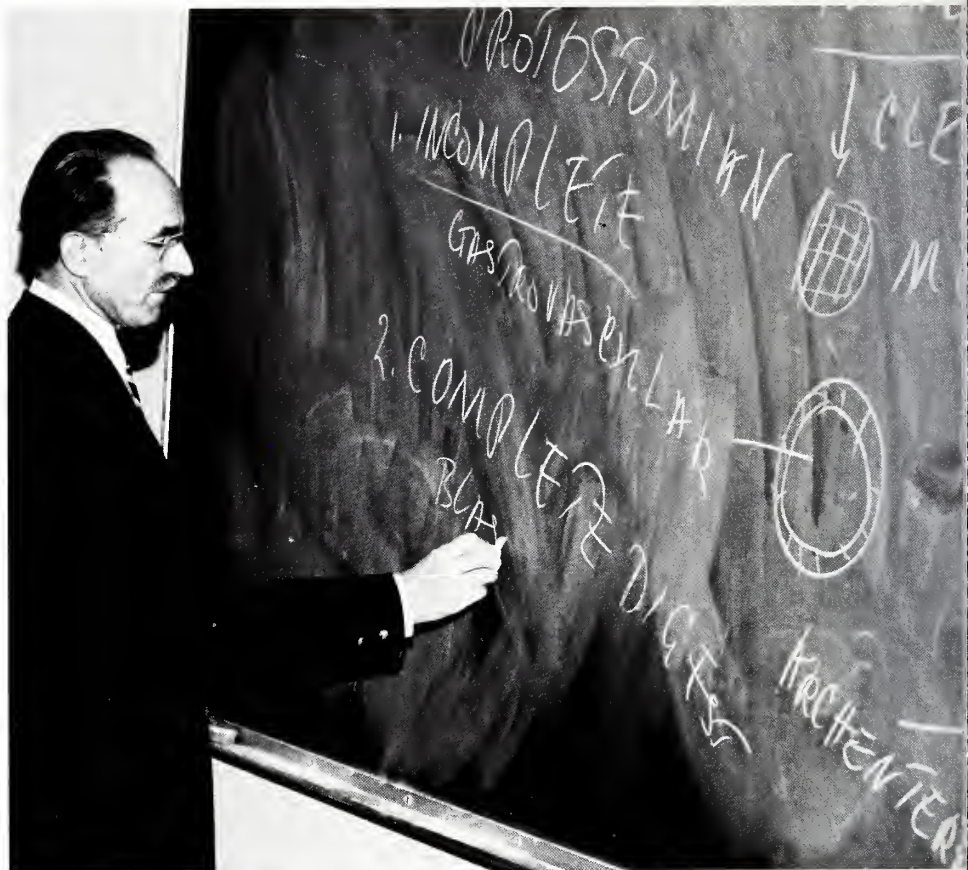 PROTOSTOMIAN
1. INCOMPLETE
GASTROVASCULAR
2. COMPLETE DIGEST
BLAS
CLE
M
ARCHENTER